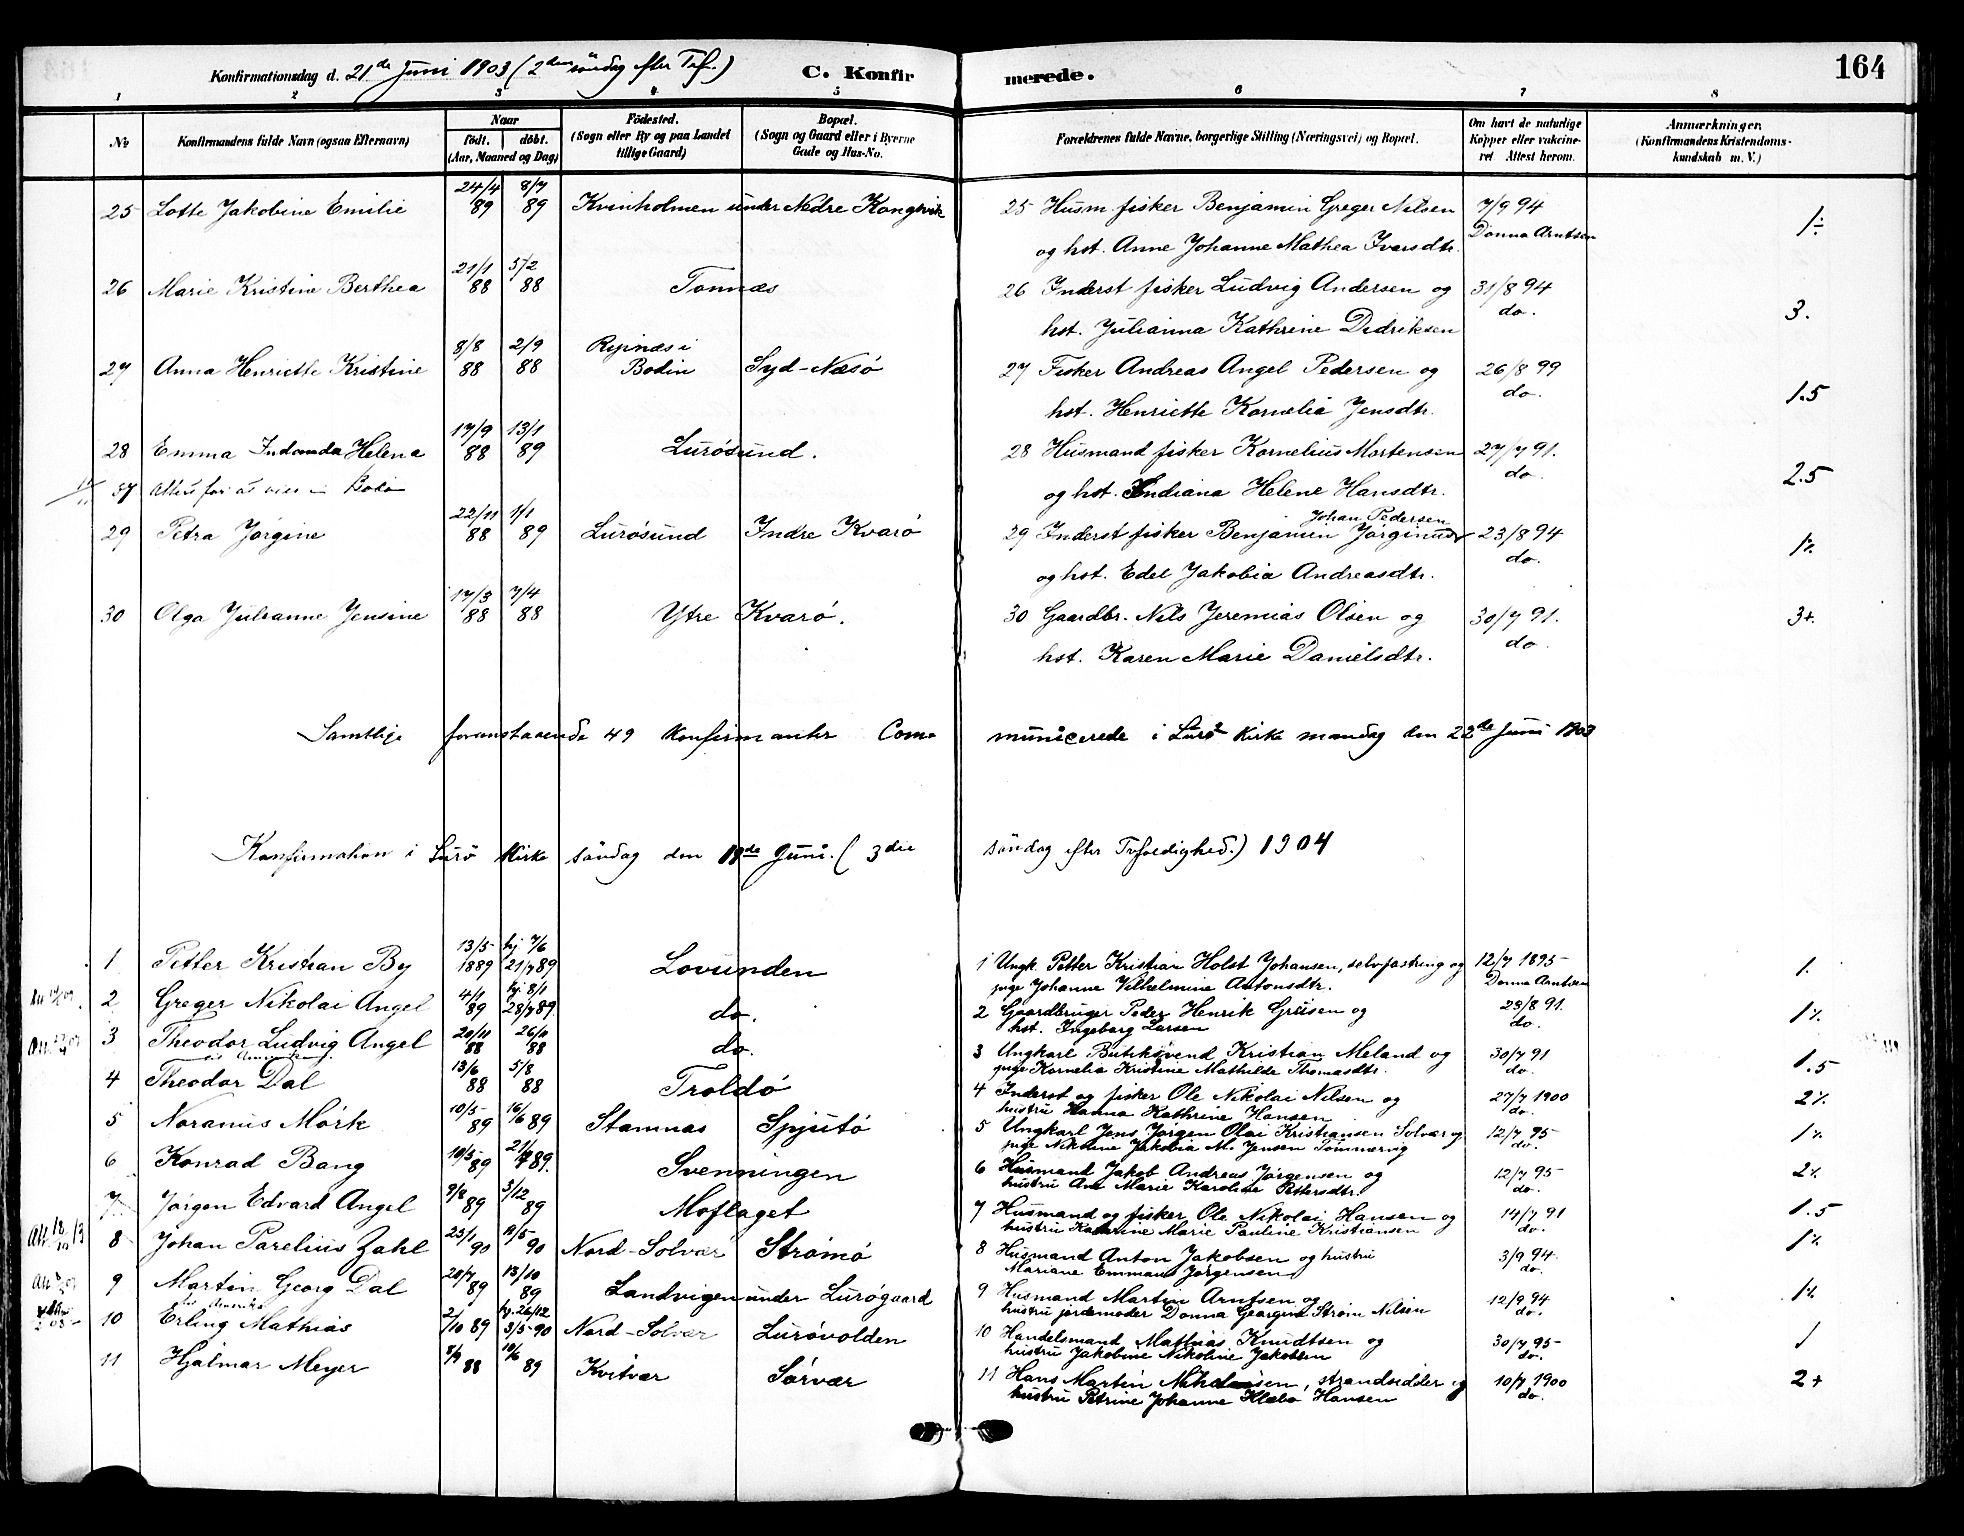 Konfirmationsdag d. 21de Juni 1903 (2den söndag efter Tref.) C. Konfirmerede. 164
1 2 3 4 5 6 7 8
No Konfirmandens fulde Navn (ogsaa Efternavn) Naar födt. döbt. (Aar, Maaned og Dag) Födested. (Sogn eller By og paa Landet tillige Gaard) Bopæl. (Sogn og Gaard eller i Byerne Gade og Hus-No. Forældrenes fulde Navne, borgerlige Stilling (Næringsvei) og Bopæl. Om havt de naturlige Kopper eller vakcineret. Attest herom. Anmærkninger. (Konfirmandens Kristendomskundskab m. V.)
25 Lotte Jakobine Emilie 24/4 89 8/7 89 Kvinholmen under Nedre Kongsvik 25 Husm. fisker Benjamin Greger Nilsen 7/9 94 1÷
og hst. Anne Johanne Mathea Ivarsdtr. Donna Arntsen
26 Marie Kristine Berthea 21/1 88 5/2 88 Tonnæs 26 Inderst fisker Ludvig Andersen og 31/8 94 3.
hst. Julianna Kathrine Didriksen do.
27 Anna Henriette Kristine 8/8 88 2/9 88 Repnæs i Bodin Syd-Næsö 27 Fisker Andreas Angel Pedersen og 26/8 99 1.5
hst. Henriette Kornelia Jensdtr. do.
28 Emma Helena 17/9 88 13/1 89 Lurösund. 28 Husmand fisker Kornelius Mortensen 27/7 91. 2.5
og hst. Indiana Helene Hansdtr. do
Attest for at vies i Bodö
29 Petra Jörgine 22/11 88 1/1 89 Lurösund Indre Kvarö 29 Inderst fisker Benjamin Johan Pedersen 23/8 94
og hst. Edel Jakobia Andreasdtr. do.
30 Olga Julianne Jensine 17/3 88 7/4 88 Ytre Kvarö. 30 Gaardbr. Nils Jeremias Olsen og 30/7 91. 3+.
hst. Karen Marie Danielsdtr. do.
Samtlige foranstaaende 49 konfirmanter Communicerede i Lurö Kirke mandag den 22de Juni 1903
Konfirmation i Lurö Kirke söndag den 18de Juni. (3die söndag efter Trefoldighed.) 1904
1 Petter Kristian By 13/5 1889 hj. 7/6 21/7 89 Lovunden 1 Ungk. Petter Kristian Holst Johansen, selvfostring og 12/7 1895 1.
pige Johanne Vilhelmine Antonsdtr. Donna Arntsen
2 Greger Nikolai Angel 4/1 89 hj. 8/1 28/7 89. do. 2 Gaardbruger Peder Henrik Greisen og 23/8 91.
hst. Ingeborg Larsen do.
3 Theodor Ludvig Angel 20/11 88 26/11 88 do. 3 Ungkarl Butiksvend Kristian Meland og 30/7 91 1.5
pige Kornelia Kristine Mathilde Thomasdtr. do.
4 Theodor Dal 13/6 88 5/8 88 Troldö 4 Inderst og fisker Ole Nikolai Nilsen og 27/7 1900
hustru Hanna Kathrine Hansen do.
5 Noranus Mörk 10/5 89 16/6 89 Stamnæs Spjutö 5 Ungkarl Jens Jørgen Olai Kristiansen Solvær og 12/7 95
pige Nikoline Jakobia M. Jensen Sommervig do.
6 Konrad Bang 10/5 89 21/7 89. Svenningen 6 Husmand Jakob Andreas Jørgensen og 12/7 95
hustru Ane Marie Karoline Pettersdtr. do.
7 Jörgen Edvard Angel 9/8 89 3/12 89 Moflaget 7 Husmand og fisker Ole Nikolai Hansen og 14/7 91 1.5
hustru Kathrine Marie Pauline Kristiansen do.
8 Johan Parelius Zahl 23/1 90 11/5 90 Nord-Solvær Strömö 8 Husmand Anton Jakobsen og hustru 3/9 94.
Mariane Emmaus Jörgensen do.
9 Martin Georg Dal 20/7 89 13/10 89 Landvigen under Lurögaard 9 Husmand Martin Arntsen og 12/9 94
hustru jordemoder Donna Georgine Ström Nilsen do.
til Amerika
10 Erling Mathias 2/10 89 hj. 26/12 3/5 90 Nord-Solvær Lurövolden 10 Handelsmand Mathias Knudtsen og 30/7 95 1
hustru Jakobine Nikoline Jakobsen do.
11 Hjalmar Meyer 8/9 88 89 Kvitvær Sörvær 11 Hans Martin strandsidder og 10/7 1900 2+
hustru Petrine Johanne Klæbo Hansen do.